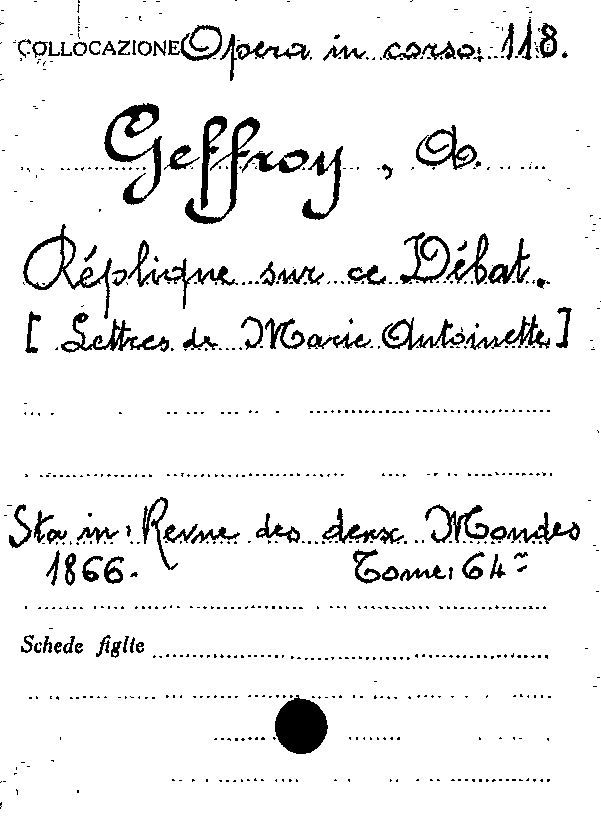 COLLOCAZIONE Opera in corso: 118.
Geffroy, A.
Réplique sur ce Débat.
[ Lettres de Marie Antoinette ]
Sta in: Revue des deux Mondes
1866. Tome: 64
Schede figlie